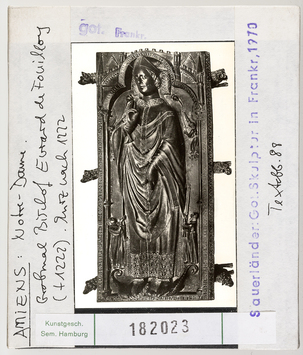 got. Frankr.
AMIENS: Notre-Dame.
Grabmal Bischof Evrard de Fouilloy
(†1222). Kurz nach 1222
Sauerländer: Got. Skulptur in Frankr., 1970
Textabb. 89
Kunstgesch.
Sem. Hamburg
182023